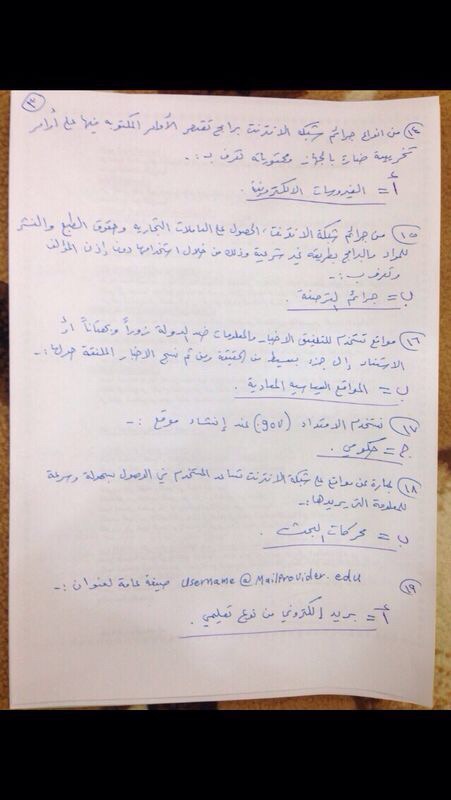 ٣
١٤ من انواع جرائم شبكة الانترنت برامج تقتصر الأوامر المكتوبة فيها على أوامر
تخريبية ضارة بالجهاز ومحتوياته تعرف بـ :-
أ = الفيروسات الالكترونية .
١٥ من جرائم شبكة الانترنت، الحصول على العلامات التجارية وحقوق الطبع والنشر
للمواد والبرامج بطريقه غير شرعية وذلك من خلال استخدامها دون إذن المؤلف
وتعرف ب :-
ب = جرائم القرصنة .
١٦ مواقع تستخدم للتلفيق الاخبار والمعلومات ضد الدولة زوراً وبهتاناً أو
الاستناد إلى جزء بسيط من الحقيقة ومن ثم نسج الاخبار الملفقة حولها :-
ب = المواقع السياسيه المعادية .
١٧ نستخدم الامتداد (gov.) عند إنشاء موقع :-
ج = حكومي .
١٨ عبارة عن مواقع على شبكة الانترنت تساعد المستخدم في الوصول بسهولة وسرعة
للمعلومة التي يريدها :-
ب = محركات البحث .
١٩ Username@Mailprovider.edu صيغة عامة لعنوان :-
أ = بريد إلكتروني من نوع تعليمي .